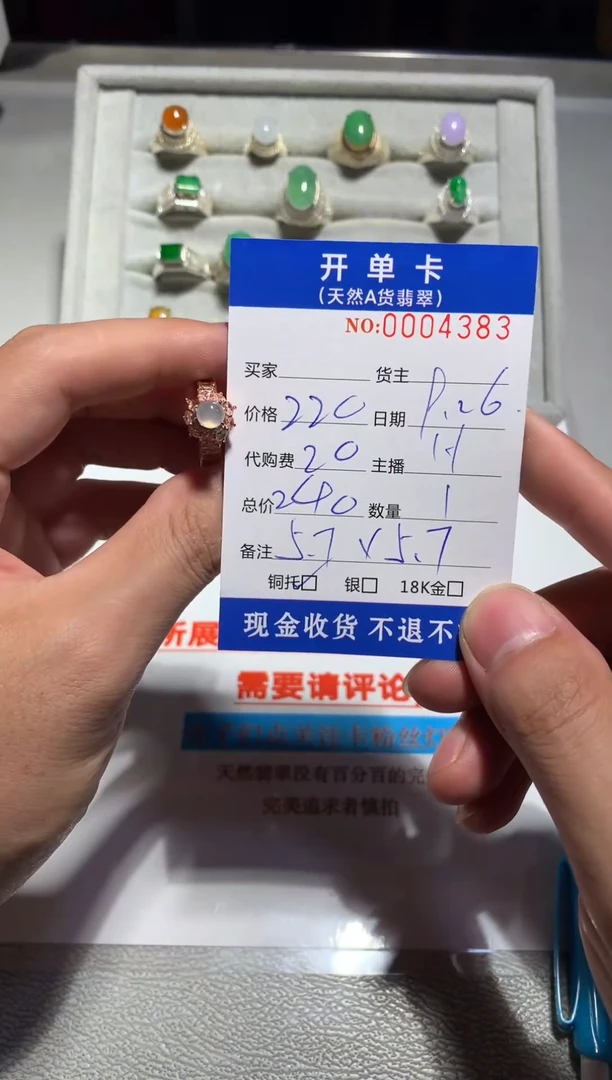 开单卡
(天然A货翡翠)
NO:0004383
买家 货主
价格 220 日期 8.26
代购费 20 主播 H
总价 240 数量 1
备注 5.7 × 5.7
铜托☑ 银☐ 18K金☐
现金收货 不退不
所展
需要请评论
天然翡翠没有百分百的完
完美追求者慎拍